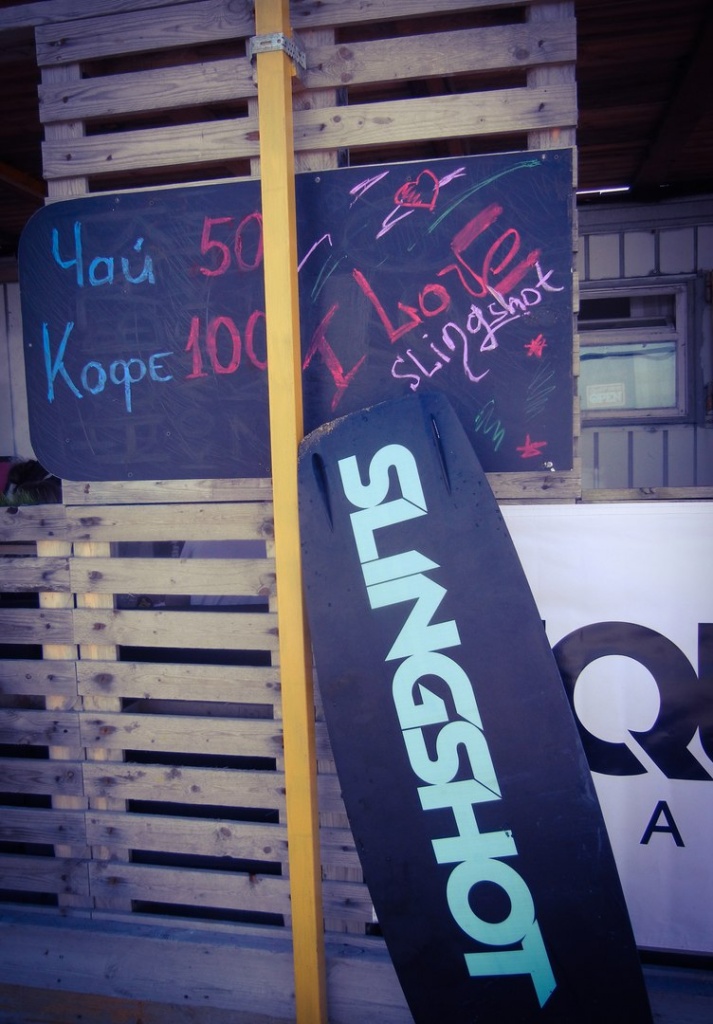 Чай 50
Кофе 100
I Love
Slingshot
SLINGSHOT
A